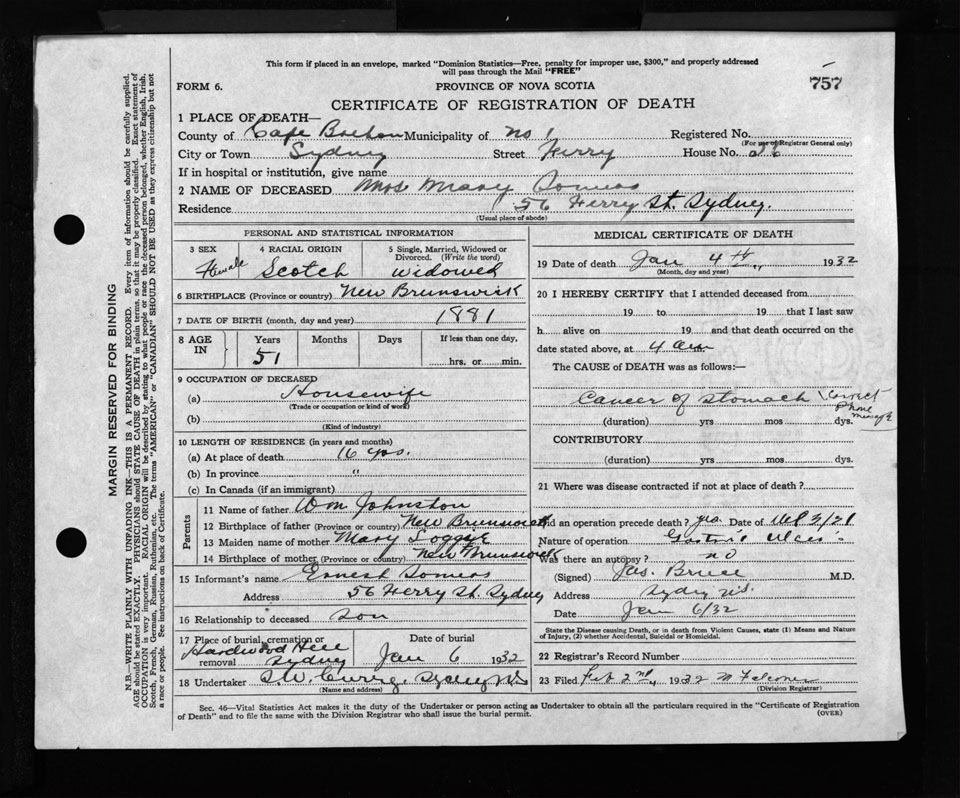 This form if placed in an envelope, marked "Dominion Statistics—Free, penalty for improper use, $300," and properly addressed
will pass through the Mail "FREE"
757
FORM 6.
PROVINCE OF NOVA SCOTIA
CERTIFICATE OF REGISTRATION OF DEATH
1 PLACE OF DEATH—
County of Cape Breton Municipality of No 1 Registered No.
(For use of Registrar General only)
City or Town Sydney Street Ferry House No. 56
If in hospital or institution, give name
2 NAME OF DECEASED Mrs Mary Somers
Residence 56 Ferry St. Sydney.
(Usual place of abode)
PERSONAL AND STATISTICAL INFORMATION
3 SEX Female
4 RACIAL ORIGIN Scotch
5 Single, Married, Widowed or Divorced. (Write the word) Widowed
6 BIRTHPLACE (Province or country) New Brunswick
7 DATE OF BIRTH (month, day and year) 1881
8 AGE IN Years 51 Months Days If less than one day, hrs. or min.
9 OCCUPATION OF DECEASED
(a) Housewife
(Trade or occupation or kind of work)
(b)
(Kind of industry)
10 LENGTH OF RESIDENCE (in years and months)
(a) At place of death 16 yrs.
(b) In province "
(c) In Canada (if an immigrant)
Parents
11 Name of father Wm Johnston
12 Birthplace of father (Province or country) New Brunswick
13 Maiden name of mother Mary Loggie
14 Birthplace of mother (Province or country) New Brunswick
15 Informant's name Ernest Somers
Address 56 Ferry St. Sydney
16 Relationship to deceased Son
17 Place of burial, cremation or removal Hardwood Hill Sydney
Date of burial Jan 6 1932
18 Undertaker Sydney NS
(Name and address)
MEDICAL CERTIFICATE OF DEATH
19 Date of death Jan 4th, 1932
(Month, day and year)
20 I HEREBY CERTIFY that I attended deceased from
19 to 19 that I last saw
h alive on 19 and that death occurred on
date stated above, at 4 am
The CAUSE of DEATH was as follows:—
Cancer of stomach Correct
Phone message
(duration) yrs mos dys.
CONTRIBUTORY
(duration) yrs mos dys.
21 Where was disease contracted if not at place of death?
Did an operation precede death? yes Date of
Nature of operation Gastric Ulcer
Was there an autopsy? no
(Signed) Jas. Bruce M.D.
Address Sydney N.S.
Date Jan 6/32
State the Disease causing Death, or in death from Violent Causes, state (1) Means and Nature
of Injury, (2) whether Accidental, Suicidal or Homicidal.
22 Registrar's Record Number
23 Filed Feb 2nd, 1932 M Falconer
(Division Registrar)
Sec. 46—Vital Statistics Act makes it the duty of the Undertaker or person acting as Undertaker to obtain all the particulars required in the "Certificate of Registration
of Death" and to file the same with the Division Registrar who shall issue the burial permit.
(OVER)
MARGIN RESERVED FOR BINDING
N.B.—WRITE PLAINLY WITH UNFADING INK—THIS IS A PERMANENT RECORD. Every item of information should be carefully supplied.
AGE should be stated EXACTLY. PHYSICIANS should STATE CAUSE OF DEATH in plain terms, so that it may be properly classified. Exact statement of
OCCUPATION is very important. RACIAL ORIGIN will be described by stating to what people or race the deceased person belonged, whether English, Irish,
Scotch, French, German, Russian, Ruthenian, etc. The terms "AMERICAN" or "CANADIAN" SHOULD NOT BE USED as they express citizenship but not
a race or people. See instructions on back of Certificate.